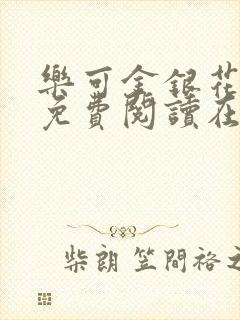 樂可金銀花
免費閱讀在
柴朗 笠間裕之